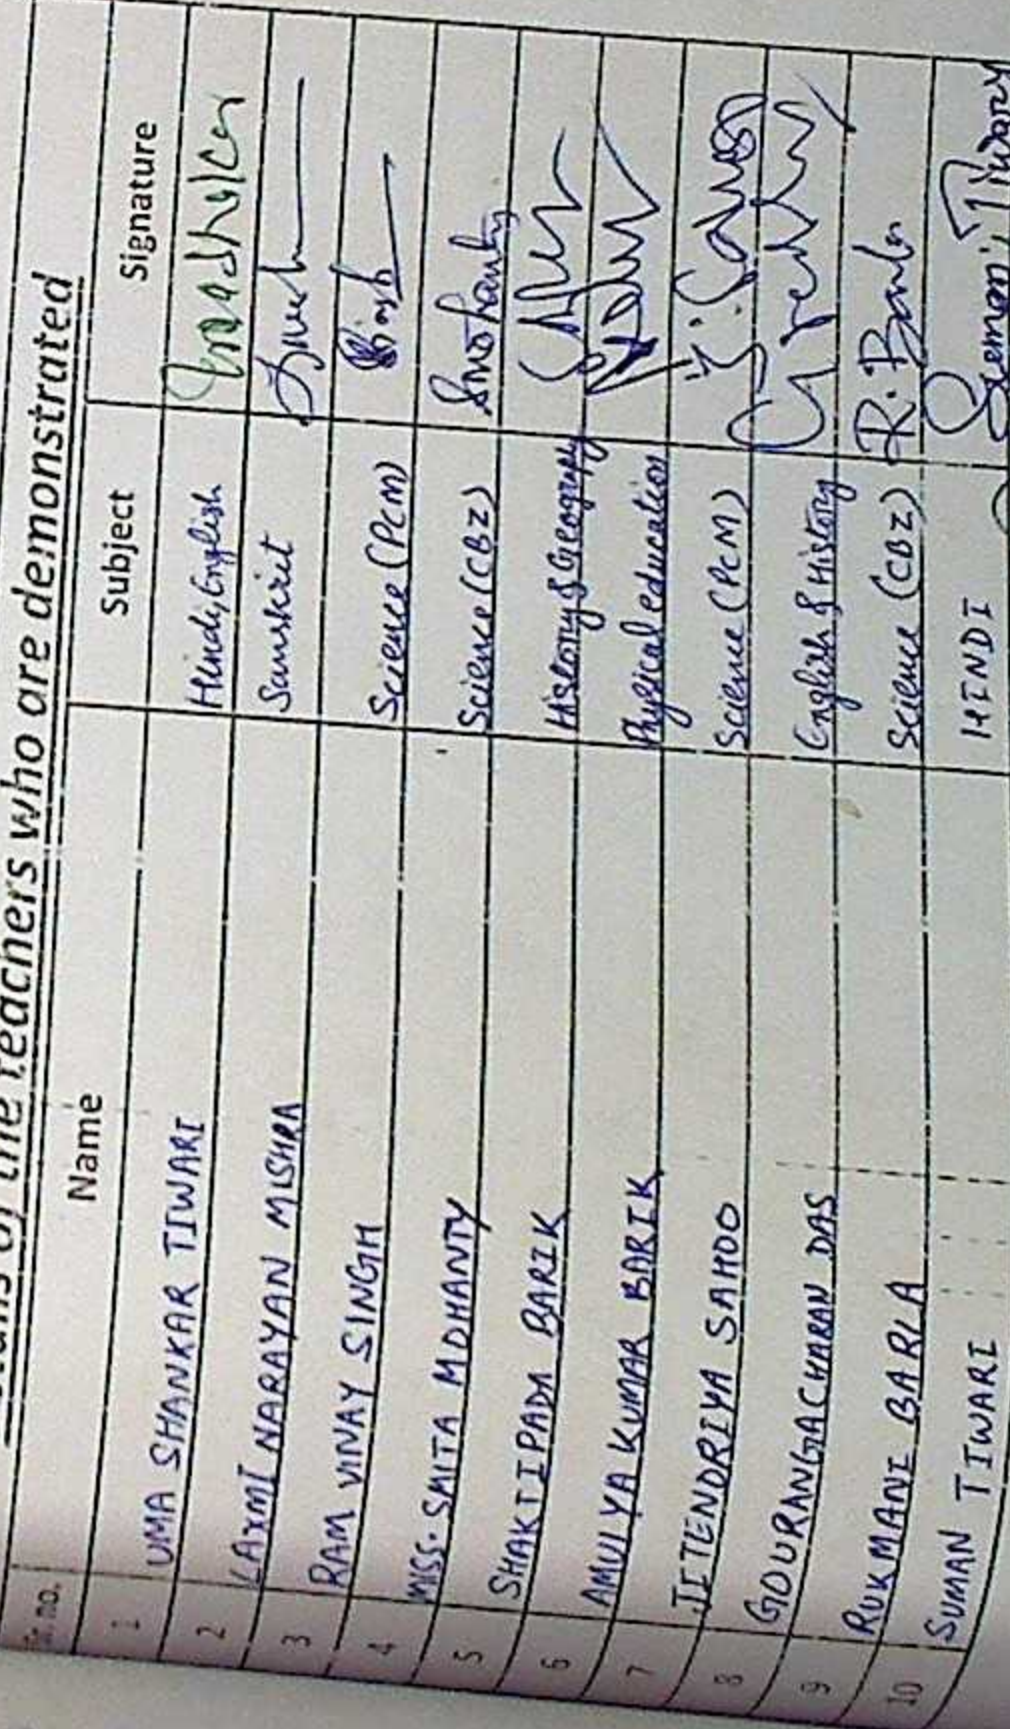 of the teachers who are demonstrated
Sr. no. Name Subject Signature
1 UMA SHANKAR TIWARI Hindi, English
2 LAXMI NARAYAN MISHRA Sanskrit
3 RAM VINAY SINGH Science (PCM) Singh
4 MISS. SMITA MOHANTY Science (CBZ) Smohanty
5 SHAKTIPADA BARIK History & Geography
6 AMULYA KUMAR BARIK Physical education
7 JITENDRIYA SAHOO Science (PCM) J. Sahoo
8 GOURANGACHARAN DAS English & History
9 RUKMANI BARLA Science (CBZ) R. Barla
10 SUMAN TIWARI HINDI Suman Tiwary